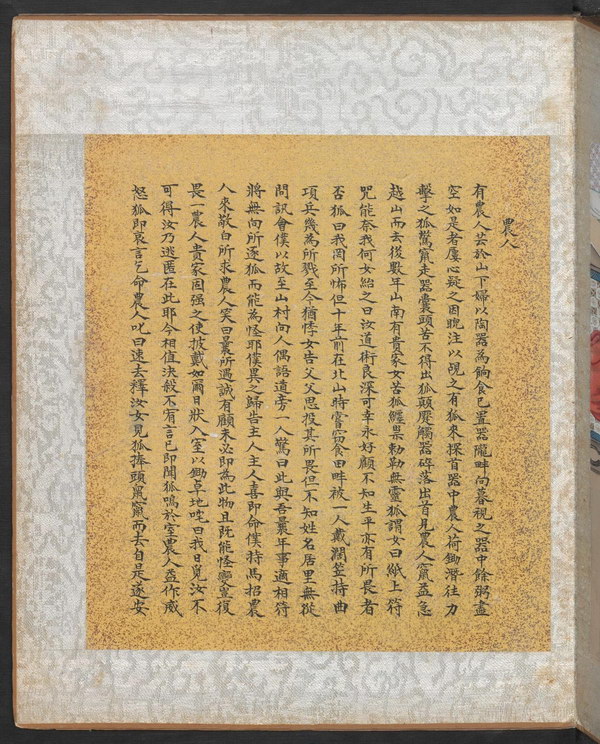 農人
有農人芸於山下婦以陶器為餉食已置器隴畔向暮視之器中餘粥盡
空如是者屢心疑之因睨注以覘之有狐來探首器中農人荷鋤潛往力
擊之狐驚竄走器囊頭苦不得出狐顛蹷觸器碎落出首見農人竄益急
越山而去後數年山南有貴家女苦狐纏祟勅勒無靈狐謂女曰紙上符
咒能奈我何女紿之曰汝道術良深可幸永好顧不知生平亦有所畏者
否狐曰我罔所怖但十年前在北山時嘗竊食田畔被一人戴濶笠持曲
項兵幾為所戮至今猶悸女告父父思投其所畏但不知姓名居里無從
問訊會僕以故至山村向人偶語道旁一人驚曰此與吾曩年事適相符
將無向所逐狐而能為怪耶僕異之歸告主人主人喜即命僕持馬招農
人來敬白所求農人笑曰曩所遇誠有顧未必即為此物且既能怪變豈復
畏一農人貴家固强之使披戴如爾日狀入室以鋤卓地咤曰我日覓汝不
可得汝乃逃匿在此耶今相值決殺不宥言已即聞狐鳴於室農人益作威
怒狐即哀言乞命農人叱曰速去釋汝女見狐捧頭鼠竄而去自是遂安